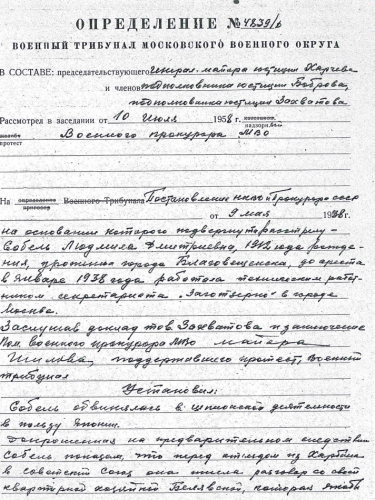 ОПРЕДЕЛЕНИЕ № 4239/б
ВОЕННЫЙ ТРИБУНАЛ МОСКОВСКОГО ВОЕННОГО ОКРУГА
В СОСТАВЕ: председательствующего Генерал-майора юстиции Харчева
и членов подполковника юстиции Боброва,
подполковника юстиции Захватова
Рассмотрел в заседании от 10 Июля 1958 г.
протест Военного прокурора МВО
На Военного Трибунала Постановление НКВД и Прокурора СССР
от 9 мая 1938 г.
на основании которого подвергнута расстрелу
Собель Людмила Дмитриевна, 1912 года рожде-
ния, уроженка города Благовещенска, до ареста
в январе 1938 года работала техническим работ-
ником секретариата "Заготзерно" в городе
Москва.
Заслушав доклад тов Захватова и заключение
Пом. военного прокурора МВО майора
поддержавшего протест, Военный
трибунал
Установил:
Собель обвинялась в шпионской деятельности
в пользу Японии.
Допрошенная на предварительном следствии
Собель показала, что перед отъездом из Харбина
в советский союз она имела разговор со своей
квартирной хозяйкой Белявской, которая якобы